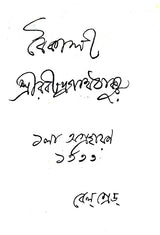 বৈকালী
শ্রীরবীন্দ্রনাথ ঠাকুর
১লা অগ্রহায়ণ
১৩৩৩
বেল্‌গ্রেড্